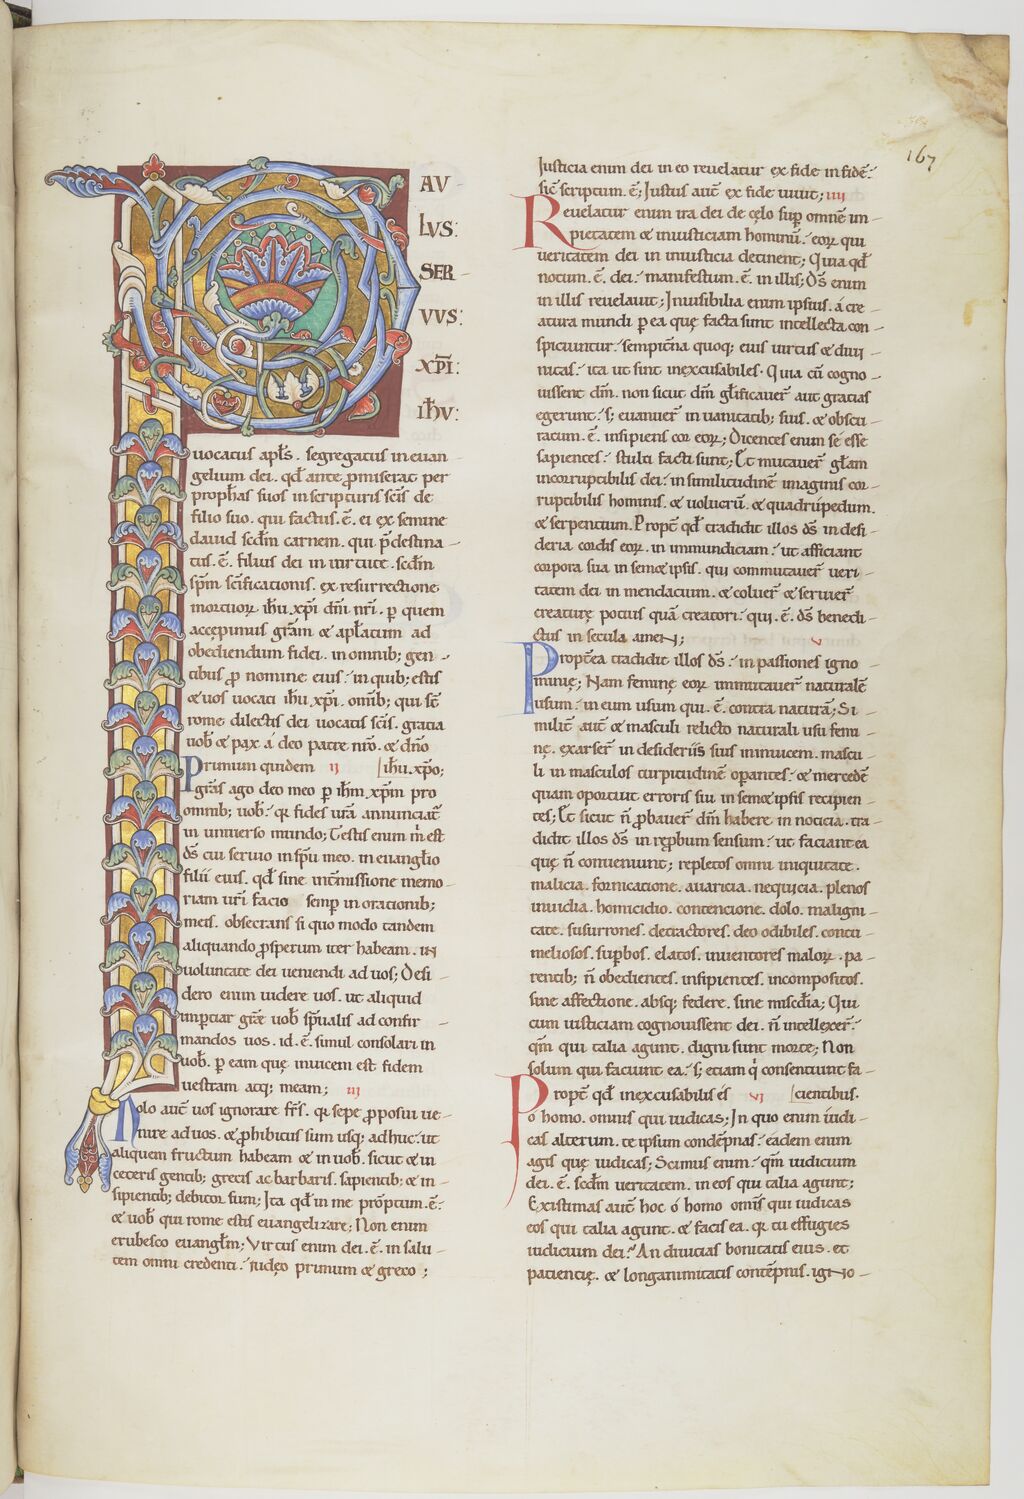 167
AV
LVS:
SER
VVS:
XP̄I:
IH̄V:
uocatus apl̄s. segregatus in euan
gelium dei. qd̄ ante ꝓmiserat per
prophas suos in scripturis sc̄is de
filio suo. qui factus. ē. ei ex semine
dauid sc̄dm carnem. qui p̄destina
tus. ē. filius dei in uirtute. sc̄dm
sp̄m sc̄ificationis. ex resurrectione
mortuoꝝ ih̄u xp̄i dn̄i nr̄i. ꝑ quem
accepimus gr̄am & apl̄atum ad
obediendum fidei. in omnib; gen
tibus ꝓ nomine eius. in quib; estis
& uos uocati ih̄u xp̄i. omīb; qui st̄
rome dilectis dei uocatis sc̄is. gratia
uob̄ & pax á deo patre nr̄o. & dn̄o
Primum quidem ii ih̄u. xp̄o;
gr̄as ago deo meo ꝑ ih̄m xp̄m pro
omnib; uob̄. qr fides ur̄a annunciat̄
in uniuerso mundo; Testis enim m̄ est
d̄s cui seruio in sp̄u meo. in euangl̄io
filii eius. qd̄ sine int̄missione memo
riam ur̄i facio semꝑ in orationib;
meis. obsecrans si quo modo tandem
aliquando ꝓsperum iter habeam. in
uoluntate dei ueniendi ad uos; Desi
dero enim uidere uos. ut aliquid
inꝑtiar gr̄e uob̄ sp̄ualis ad confir
mandos uos. id. ē. simul consolari in
uob̄. ꝑ eam quę inuicem est fidem
uestram atq; meam; iii
Nolo aut̄ uos ignorare fr̄s. qr sepe ꝓposui ue
nire ad uos. & ꝓhibitus sum usq; adhuc. ut
aliquem fructum habeam & in uob̄. sicut & in
ceteris gentib; grecis ac barbaris. sapientib; & in
sipientib; debitor sum; Ita qd̄ in me prōptum. ē.
& uob̄ qui rome estis euangelizare; Non enim
erubesco euangl̄m; Virtus enim dei. ē. in salu
tem omni credenti. iudęo primum & greco;
Iusticia enim dei in eo reuelatur ex fide in fidē.
sic̄ scriptum. ē; Iustus aut̄ ex fide uiuit; iiii
Reuelatur enim ira dei de cęlo suꝑ omnē im
pietatem & iniusticiam hominū. eoꝝ qui
ueritatem dei in iniusticia detinent; Quia qd̄
notum. ē. dei. manifestum. ē. in illis; D̄s enim
in illis reuelauit; Inuisibilia enim ipsius. á cre
atura mundi ꝑ ea quę facta sunt intellecta con
spiciuntur. sempit̄na quoq; eius uirtus & diui
nitas. ita ut sint inexcusabiles. Quia cū cogno
uissent dm̄. non sicut dm̄ gl̄ificauer̄ aut gratias
egerunt. s; euanuer̄ in uanitatib; suis. & obscu
ratum. ē. insipiens cor eoꝝ; Dicentes enim se esse
sapientes. stulti facti sunt; Et mutauer̄ gl̄am
incorruptibilis dei. in similitudinē imaginis cor
ruptibilis hominis. & uolucrū. & quadrupedum.
& serpentium. Propt̄ qd̄ tradidit illos d̄s in desi
deria cordis eoꝝ. in immundiciam. ut afficiant
corpora sua in semet ipsis. qui commutauer̄ ueri
tatem dei in mendacium. & coluer̄ & seruier̄
creaturę potius quā creatori. qui. ē. d̄s benedi
ctus in secula amen; v
Propt̄ea tradidit illos d̄s. in passiones igno
minię; Nam feminę eoꝝ immutauer̄ naturalē
usum. in eum usum qui. ē. contra naturā; Si
milit̄ aut̄ & masculi relicto naturali usu femi
nę. exarser̄ in desideriis suis in inuicem. mascu
li in masculos turpitudinē oꝑantes. & mercedē
quam oportuit erroris sui in semet ipsis recipien
tes; Et sicut n̄ ꝓbauer̄ dm̄ habere in noticia. tra
didit illos d̄s in rep̄bum sensum. ut faciant ea
quę n̄ conueniunt; repletos omni iniquitate.
malicia. fornicatione. auaricia. nequicia. plenos
inuidia. homicidio. contencione. dolo. maligni
tate. susurrones. detractores. deo odibiles. contu
meliosos. suꝑbos. elatos. inuentores maloꝝ. pa
rentib; n̄ obedientes. insipientes. incompositos.
sine affectione. absq; federe. sine misc̄dia; Qui
cum iusticiam cognouissent dei. n̄ intellexer̄.
qm̄ qui talia agunt. digni sunt morte; Non
solum qui faciunt ea. s; etiam q̇ consentiunt fa
Propt̄ qd̄ inexcusabilis és vi cientibus.
o homo. omnis qui iudicas; In quo enim iudi
cas alterum. te ipsum condēpnas. eadem enim
agis quę iudicas; Scimus enim. qm̄ iudicium
dei. ē. sc̄dm ueritatem. in eos qui talia agunt;
Existimas aut̄ hoc ó homo omis̄ qui iudicas
eos qui talia agunt. & facis ea. qr tu effugies
iudicium dei? An diuitias bonitatis eius. et
patientię. & longanimitatis contēpnis. igno